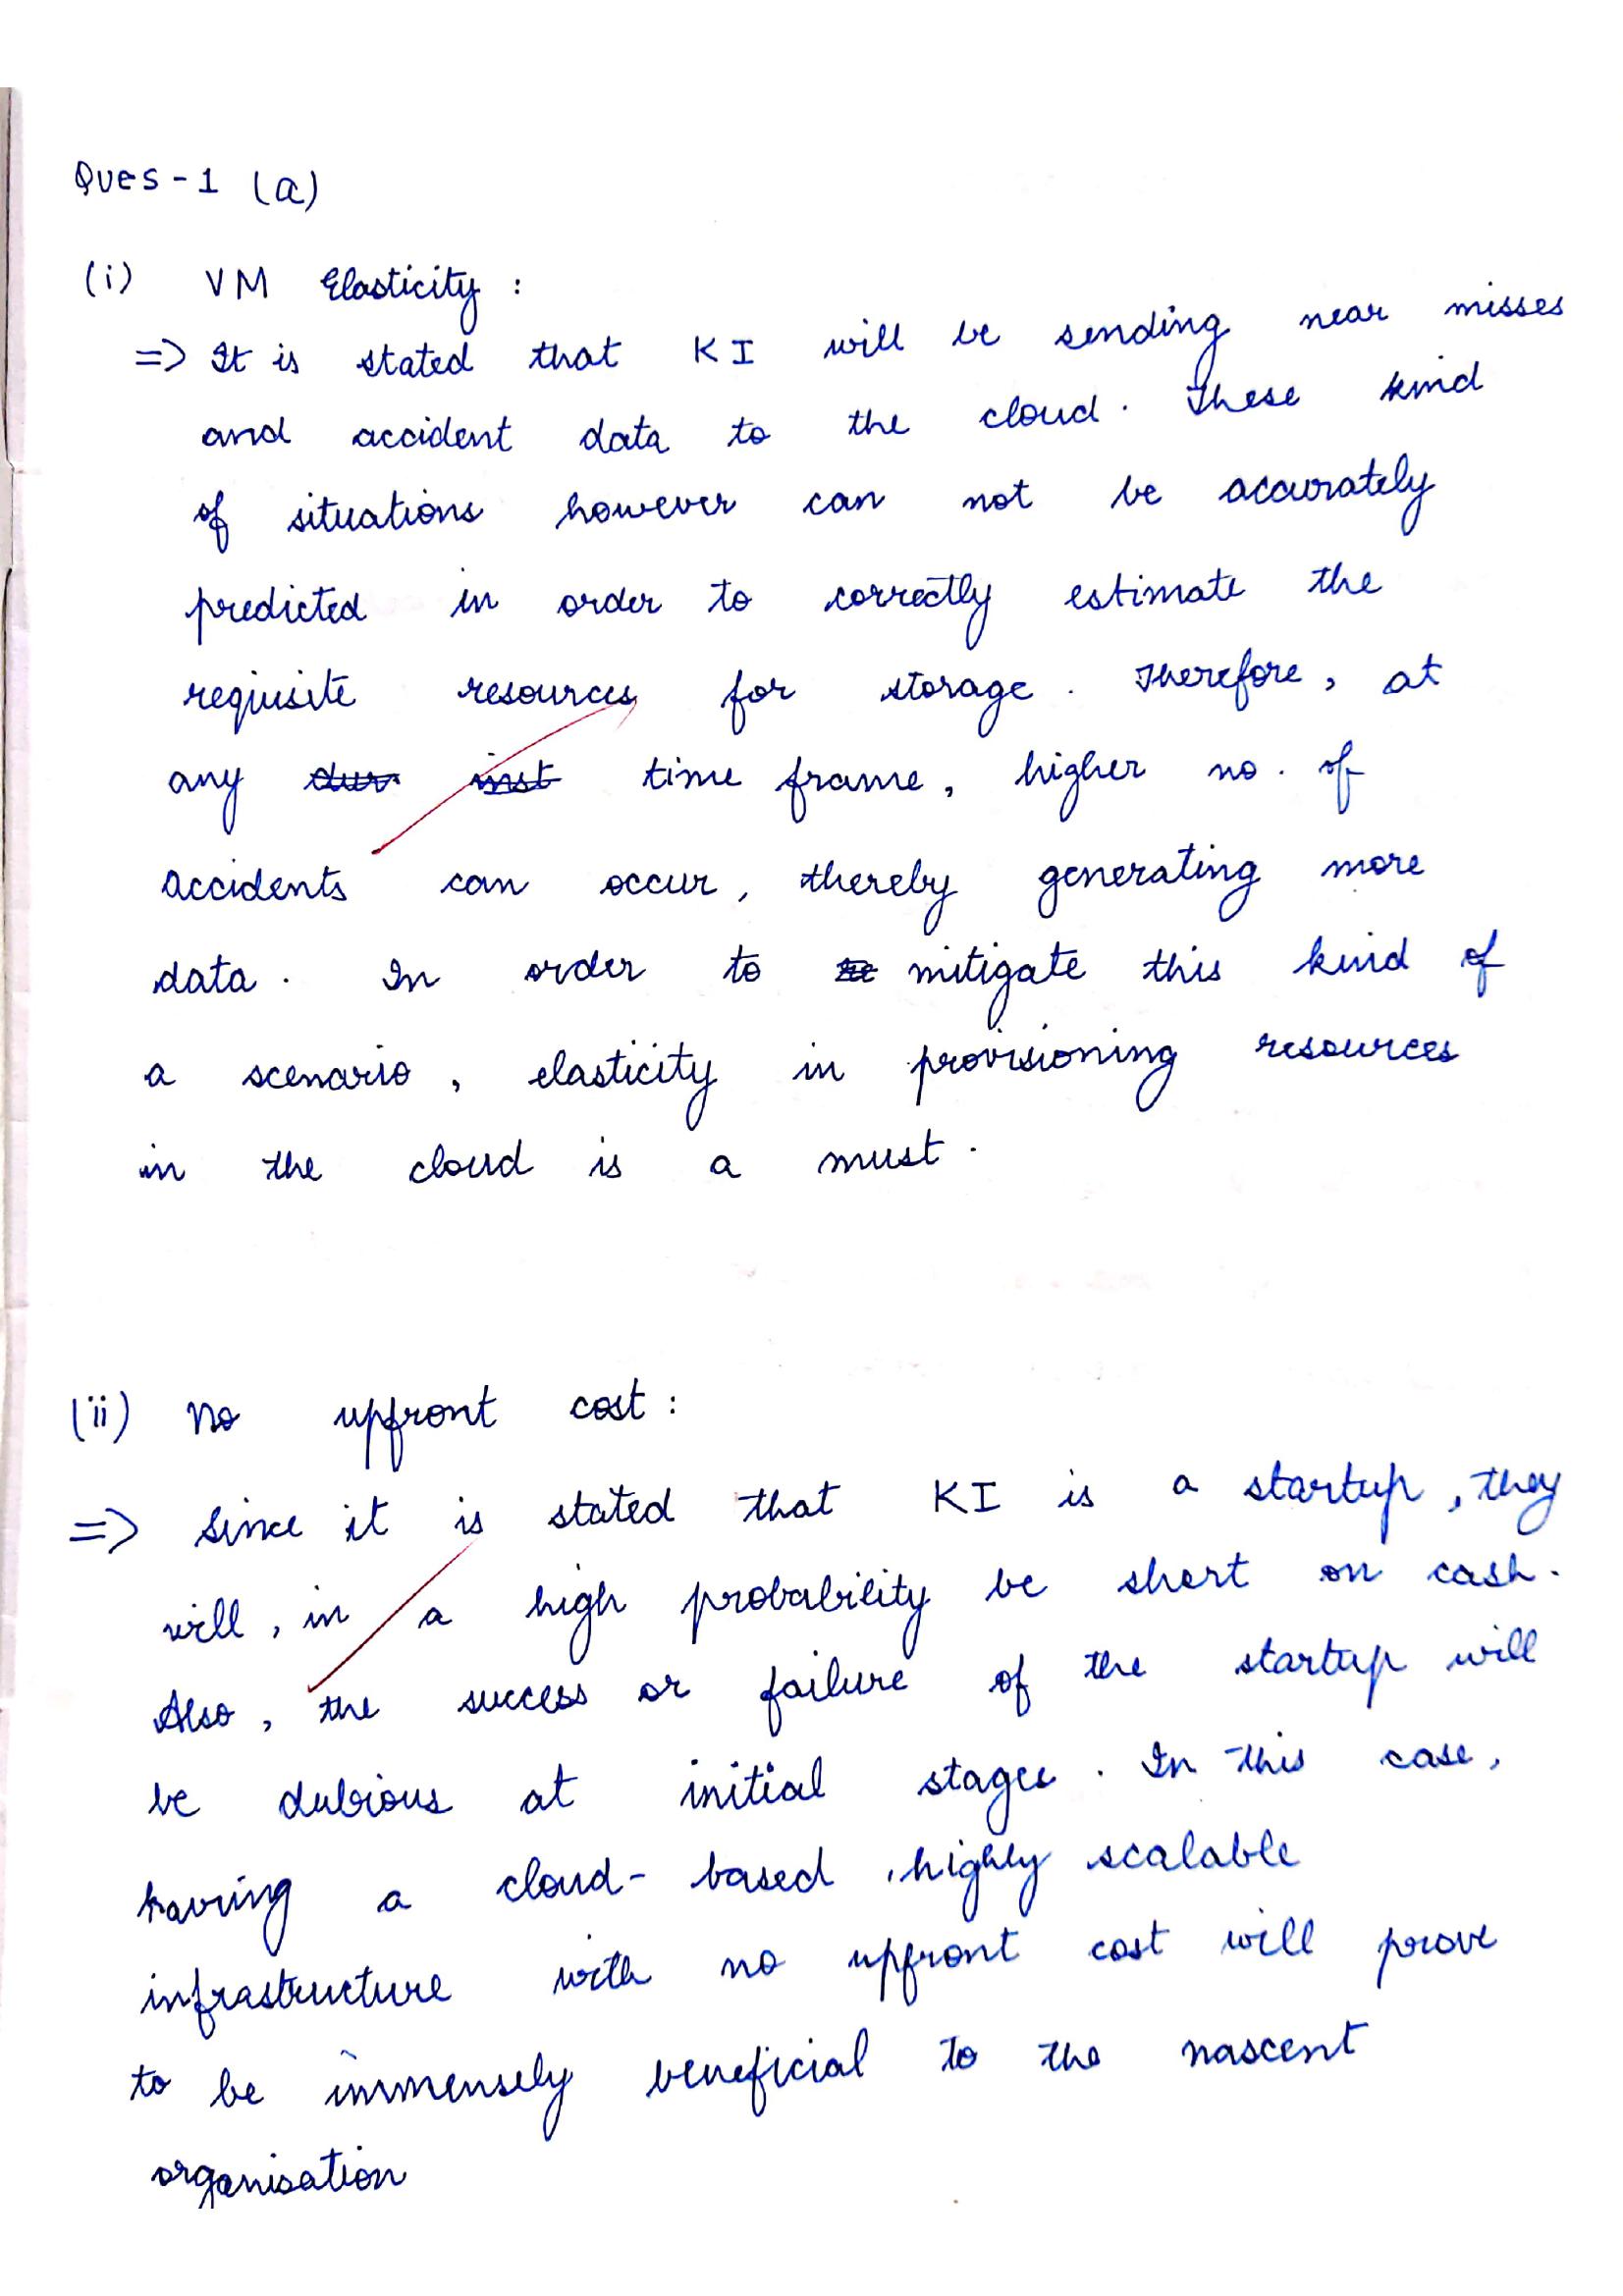 Ques-1 (a)
(i) VM Elasticity :
=> It is stated that KI will be sending near misses
and accident data to the cloud. These kind
of situations however can not be accurately
predicted in order to correctly estimate the
requisite resources for storage. Therefore, at
any dur inst time frame, higher no. of
accidents can occur, thereby generating more
data. In order to mitigate this kind of
a scenario, elasticity in provisioning resources
in the cloud is a must.
(ii) No upfront cost :
=> Since it is stated that KI is a startup, they
will, in a high probability be short on cash.
Also, the success or failure of the startup will
be dubious at initial stages. In this case,
having a cloud-based, highly scalable
infrastructure with no upfront cost will prove
to be immensely beneficial to the nascent
organisation